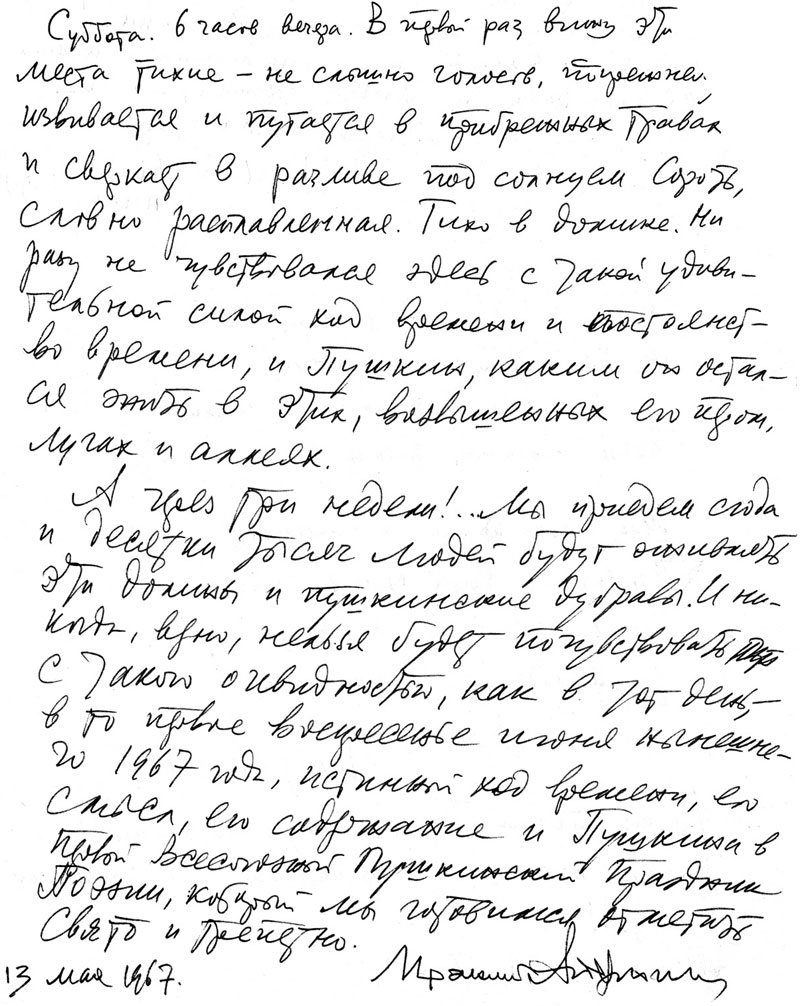 Суббота. 6 часов вечера. В первый раз вижу эти
места тихие – не слышно голосов, песнею
извивается и путается в прибрежных травах
и сверкает в разливе под солнцем Сороть,
словно расплавленная. Тихо в домике. Ни
разу не чувствовался здесь с такой удиви-
тельной силой ход времени и постоянст-
во времени, и Пушкин, каким он остал-
ся жить в этих, возвышенных его пером,
лугах и аллеях.
А через три недели!.. Мы приедем сюда
и десятки тысяч людей будут оживлять
эти долины и пушкинские дубравы. И ни-
когда, верно, нельзя будет почувствовать
с такой очевидностью, как в тот день, –
в то первое воскресенье июня нынешне-
го 1967 года, истинный ход времени, его
смысл, его содержание и Пушкина в
первый Всесоюзный Пушкинский Праздник
Поэзии, который мы готовимся отметить
свято и трепетно.
13 мая 1967.
Ираклий Андроников